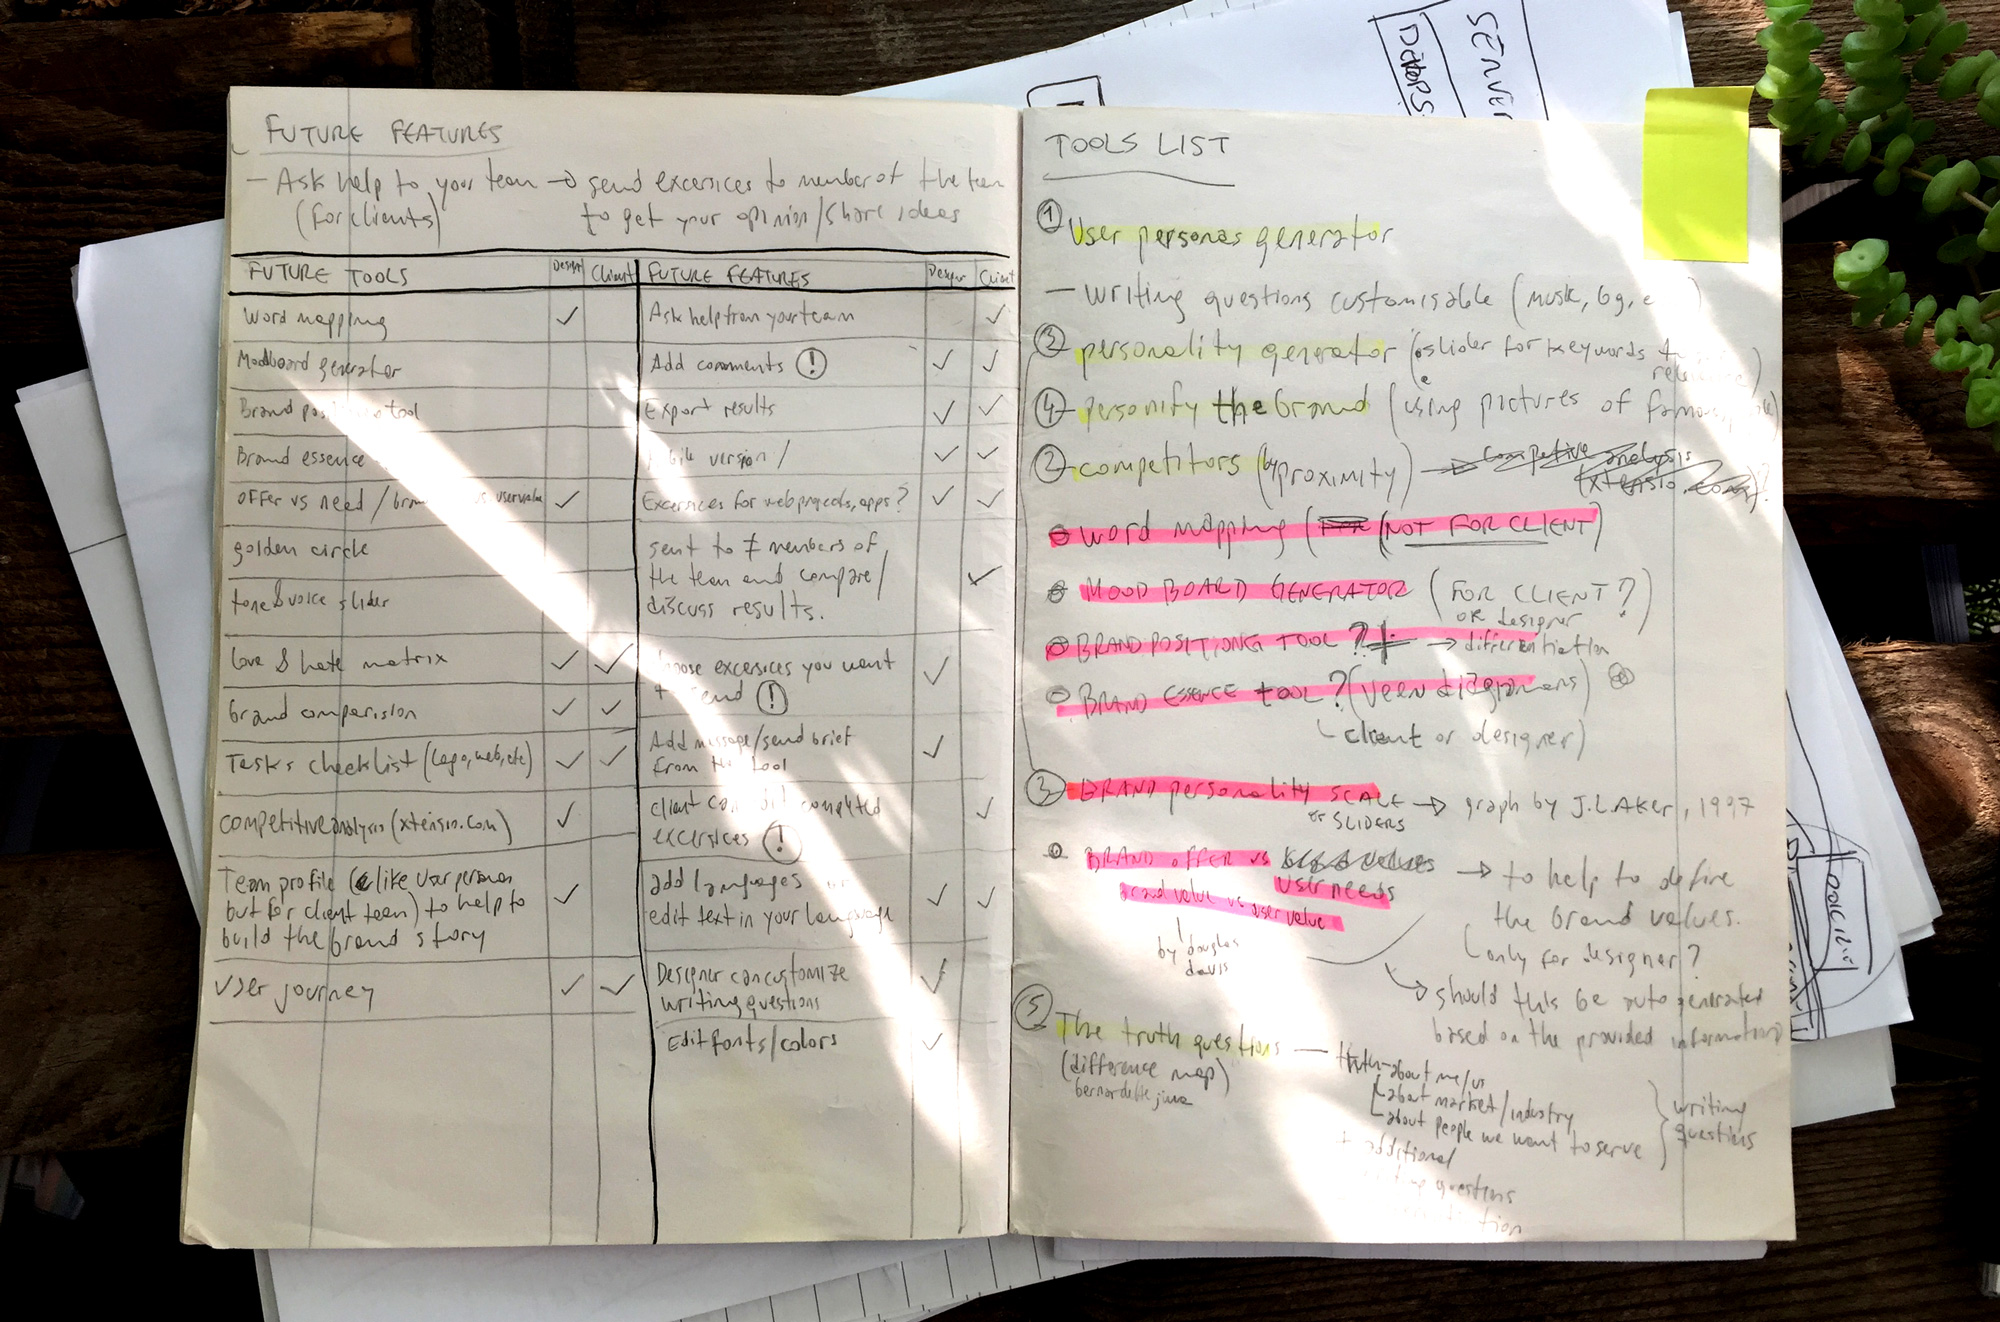 FUTURE FEATURES
- Ask help to your team → send excersices to member of the team
(for clients) to get your opinion/share ideas
FUTURE TOOLS Design Client
word mapping ✓
Moodboard generator
Brand tool
Brand essence
offer vs need / vs uservalue ✓
golden circle
tone & voice slider
love & hate matrix ✓ ✓
brand comparision ✓ ✓
Tasks checklist (logo, web, etc) ✓ ✓
competitive analysis (xtensio.com) ✓
Team profile (like user persona
but for client team) to help to ✓
build the brand story
User journey ✓ ✓
FUTURE FEATURES Client
Ask help from your team ✓
Add comments ! ✓ ✓
Export results ✓ ✓
version / ✓ ✓
Excersices for web projects, apps? ✓ ✓
sent to ≠ members of
the team and compare/ ✓
discuss results.
excersices you want ✓
send !
Add message/send brief ✓
from the tool
client completed ✓
excersices !
add languages ✓ ✓
edit text in your language
Designer can customize ✓
writing questions
Edit fonts/colors ✓
TOOLS LIST
① User personas generator
- writing questions customisable (
③ personality generator ( slider for keywords
④ personify the brand (using pictures of
② competitors (by proximity) → competitive analysis
(xtensio )?
word mapping ( (NOT FOR CLIENT)
MOOD BOARD GENERATOR (FOR CLIENT?)
or designer
BRAND POSITIONG TOOL? → differentiation
BRAND ESSENCE TOOL? (veen diagrams)
client or designer)
③ BRAND personality SCALE → graph by J.L AKER, 1997
or SLIDERS
BRAND OFFER vs values → to help to define
USER NEEDS the brand values.
brand value vs user value (only for designer?
by douglas
davis
→ should this be auto generated
based on the provided information
⑤ The truth questions — truth-about me/us
(difference map) about market/industry
about people we want to serve
writing
questions
additional
questions
SERVER